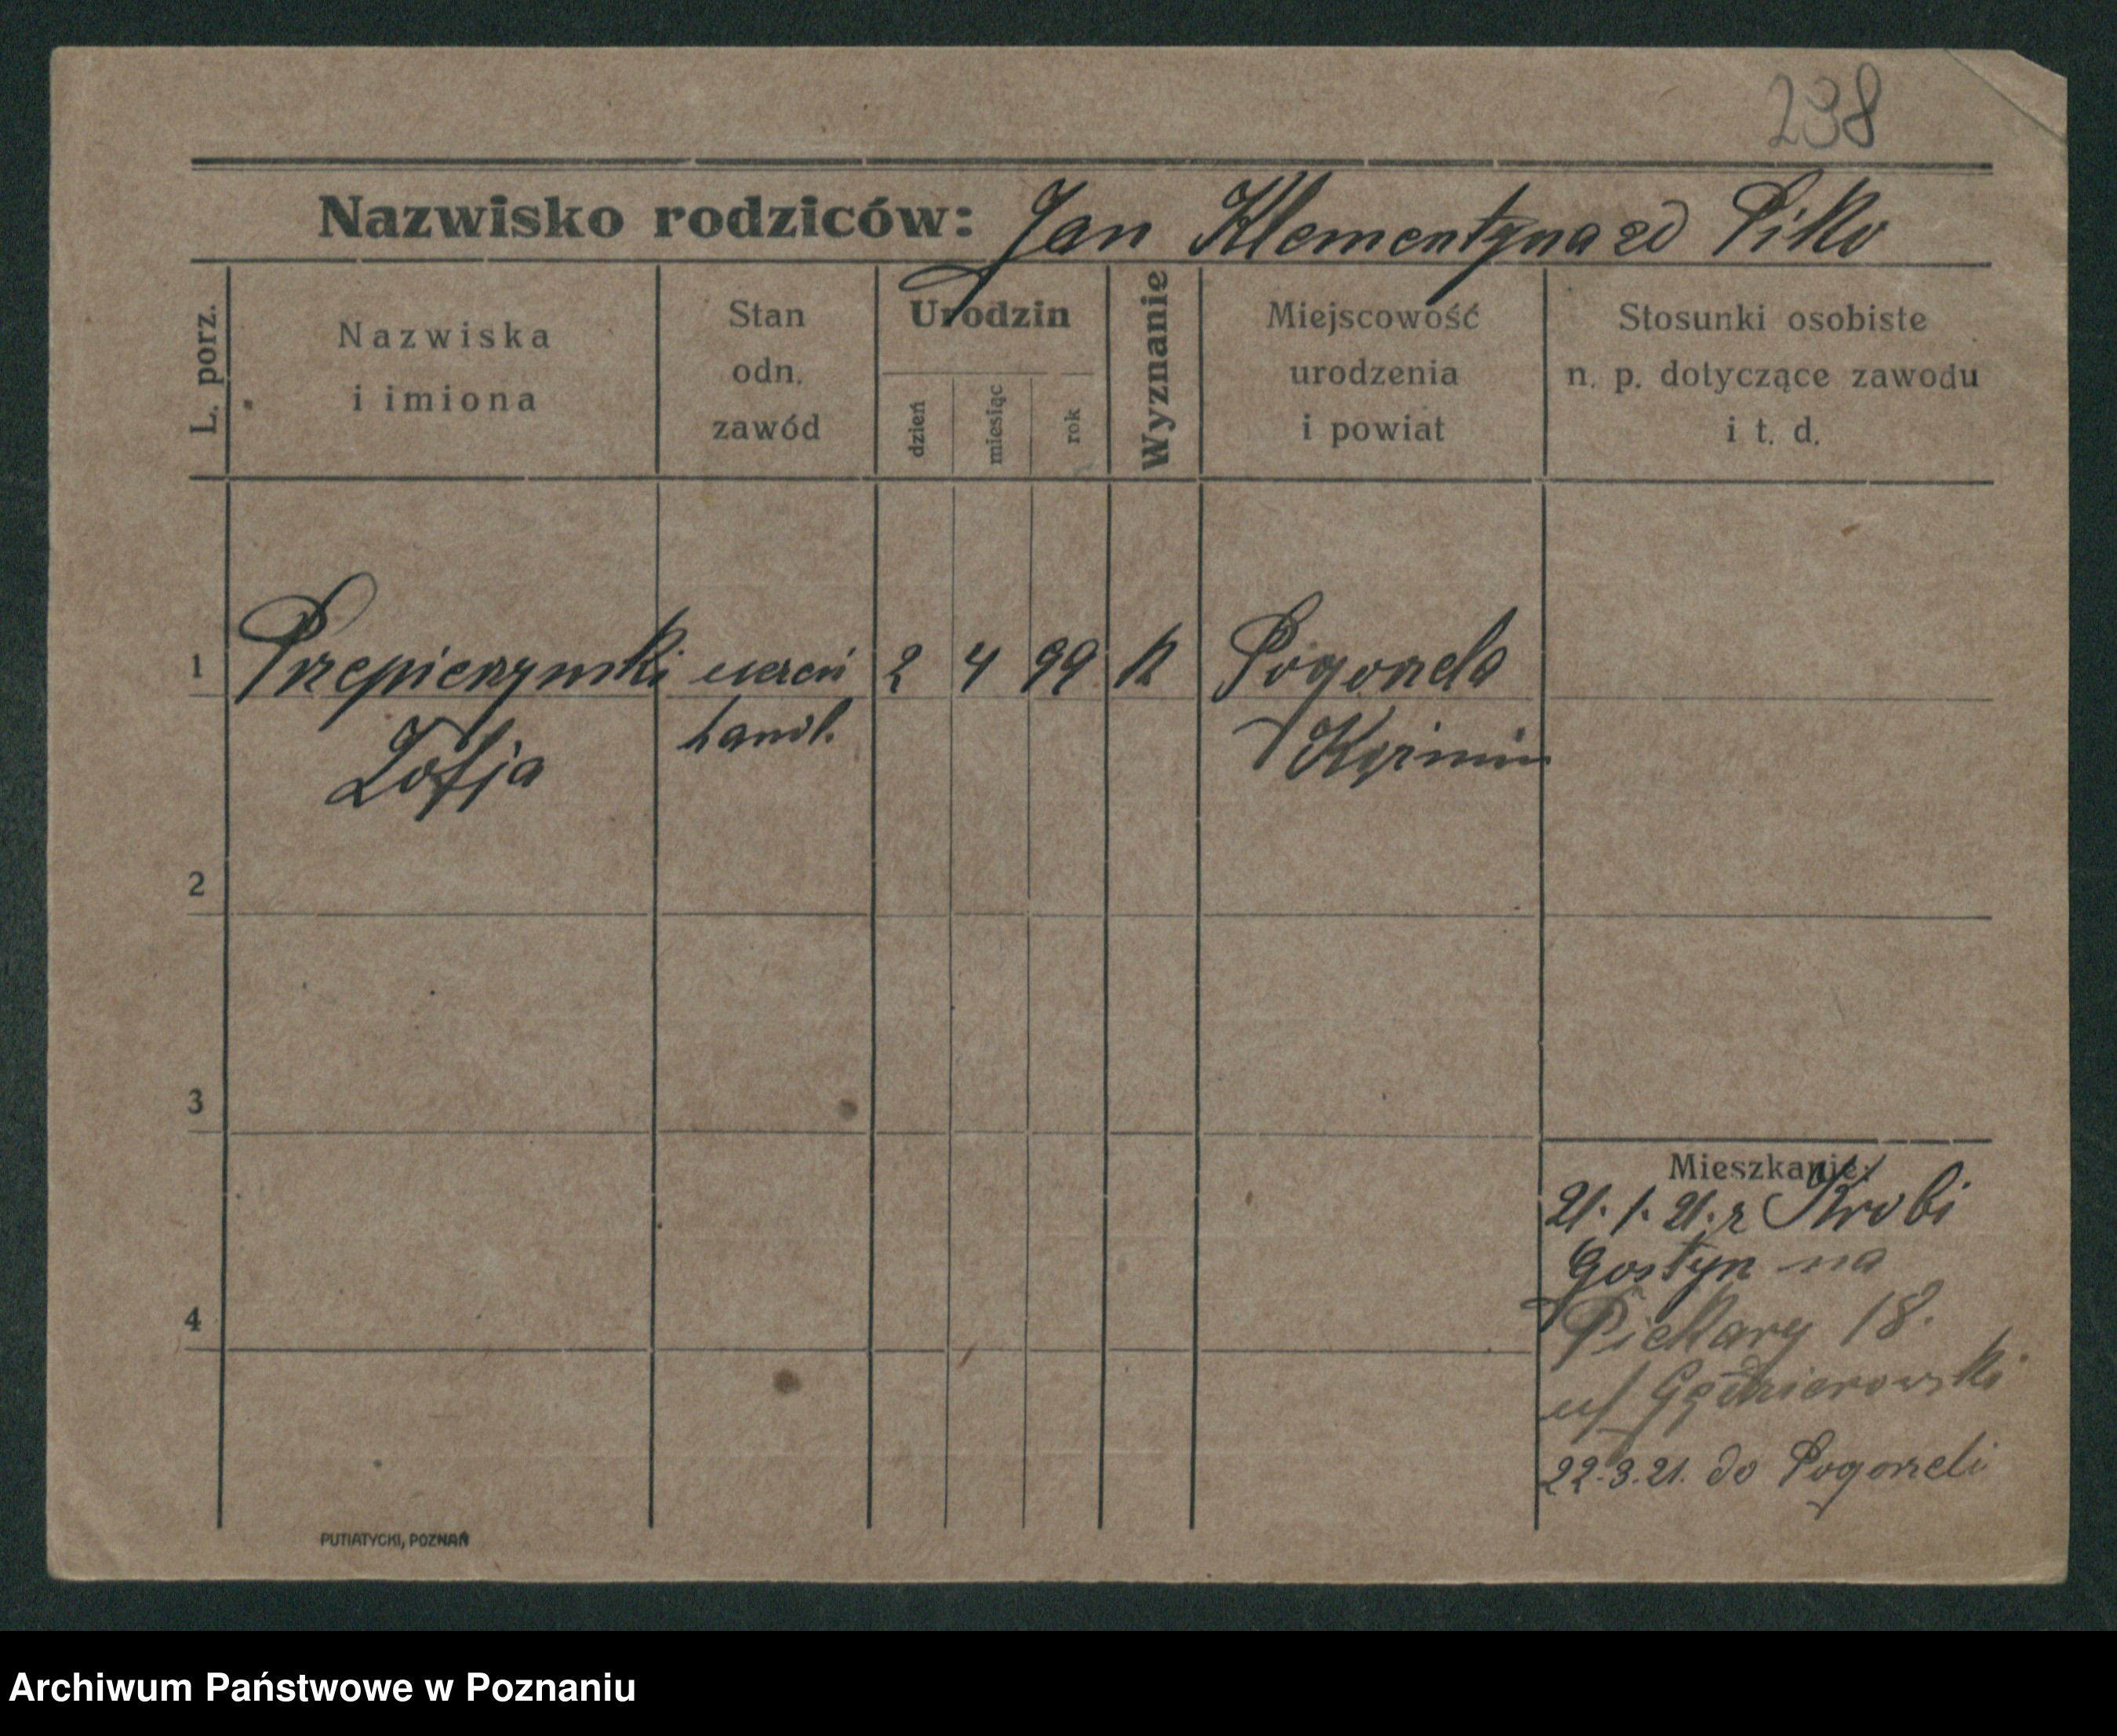 238
Nazwisko rodziców: Jan Klementyna zd Piko
L. porz.
Nazwiska
i imiona
Stan
odn.
zawód
Urodzin
dzień
miesiąc
rok
Wyznanie
Miejscowość
urodzenia
i powiat
Stosunki osobiste
n. p. dotyczące zawodu
i t. d.
1 2 4 99 K Pogorzela
handl.
Zofja
2
3
4
Mieszkanie:
21. 1. 21. z Krobi
Gostyn na
Piekary 18.
22. 3. 21. do Pogorzeli
PUTIATYCKI, POZNAŃ
Archiwum Państwowe w Poznaniu